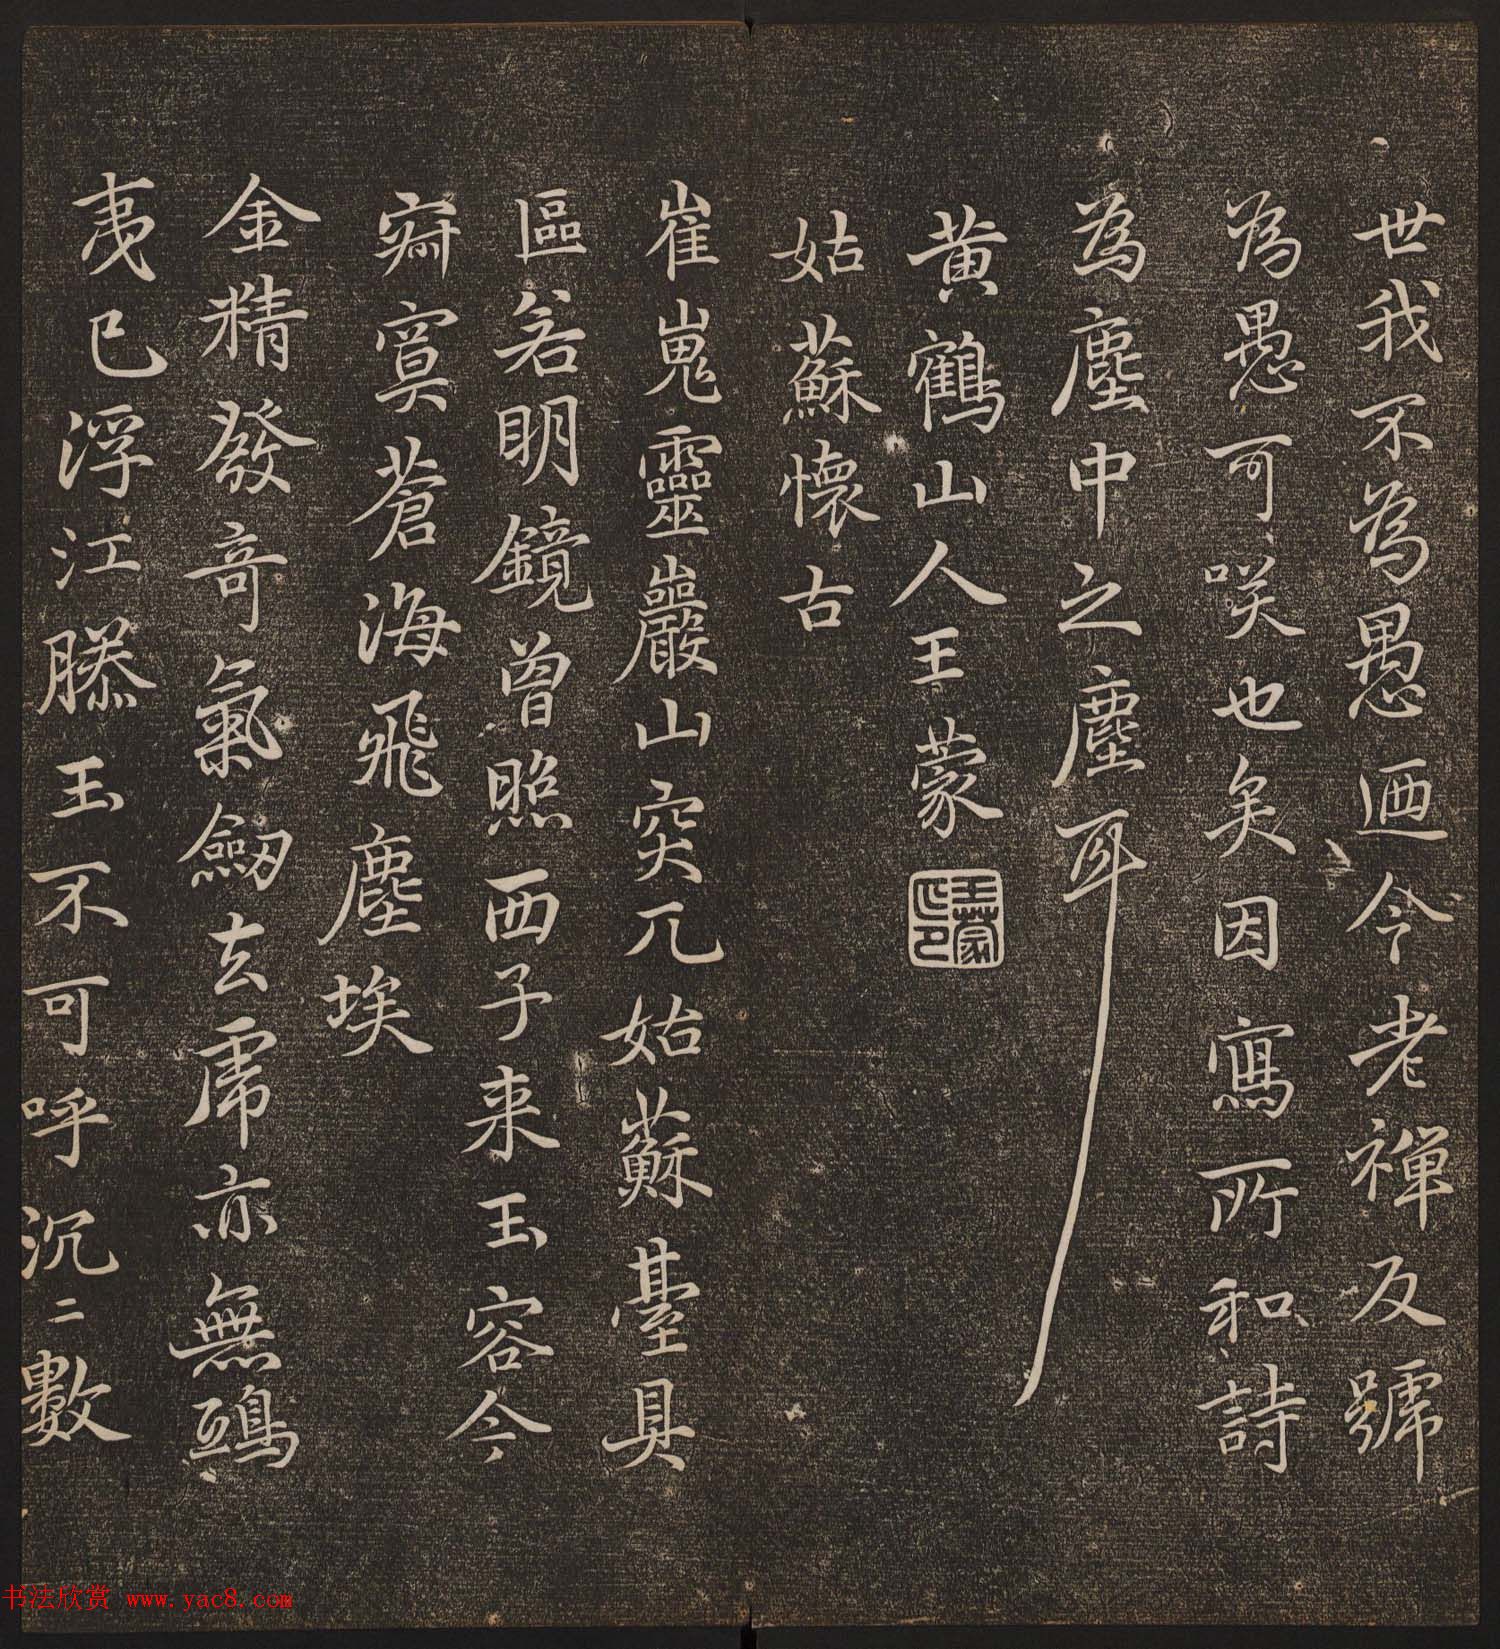 世我不為愚迺今老禪反號
為愚可咲也矣因寫所和詩
為塵中之塵耳
黃鶴山人王蒙
王蒙印
姑蘇懷古
崔嵬靈巖山突兀姑蘇臺具
區若明鏡曾照西子来玉容今
寂寞蒼海飛塵埃
金精發奇氣劔去席亦無鴟
夷已浮江滕玉不可呼沉二數
书法欣赏 www.yac8.com